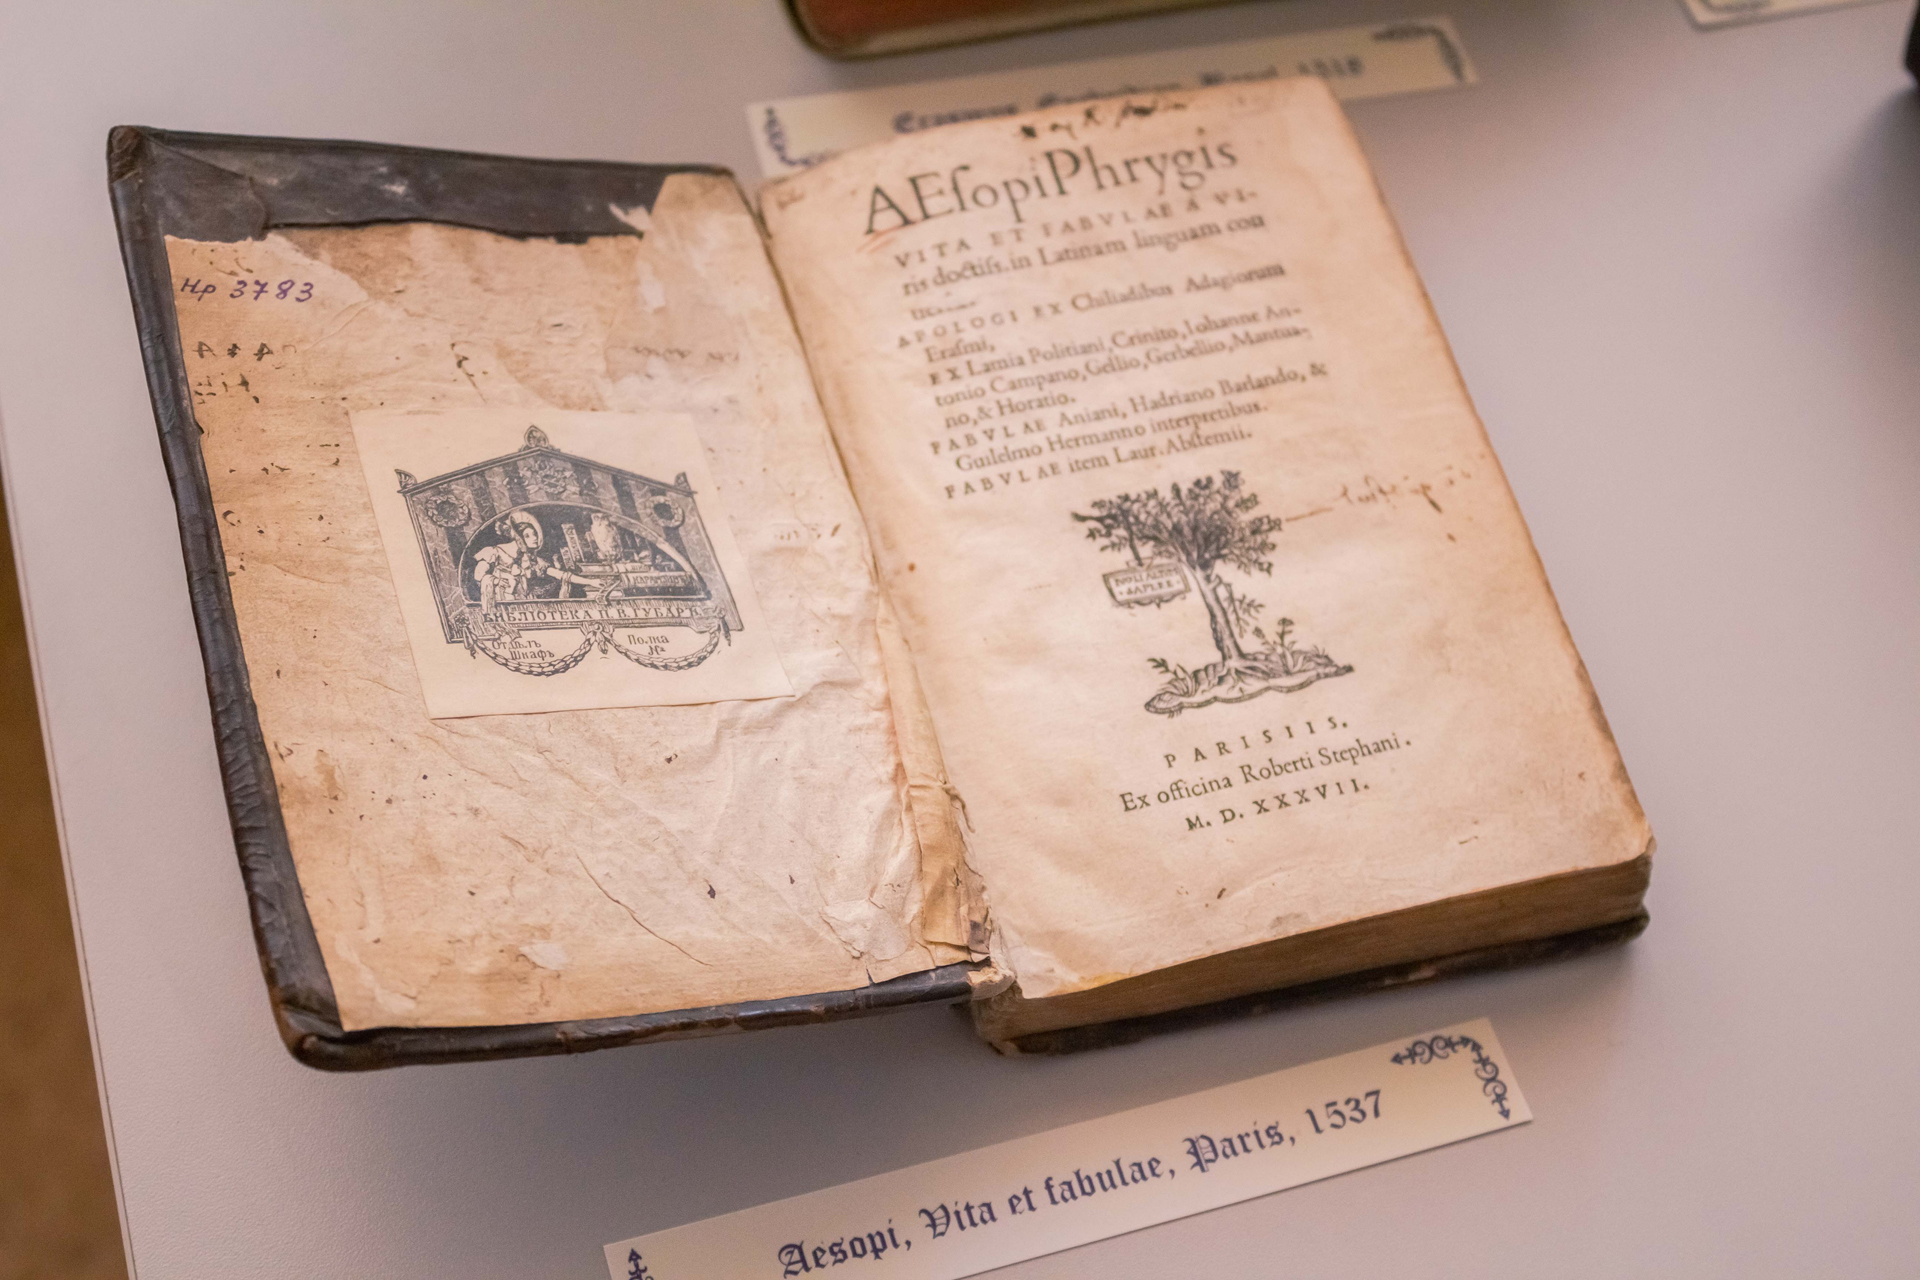 Erasmus 1518
Нр 3783
КАРАМЗИНЪ
БИБЛIОТЕКА П. В. ГУБАРЪ
Отдѣлъ
Шкафъ
Полка
№
AEſopiPhrygis
VITA ET FABVLAE A VI-
ris doctiſs. in Latinam linguam con
APOLOGI EX Chiliadibus Adagiorum
Eraſmi,
EX Lamia Politiani, Crinito, Iohanne An-
tonio Campano, Gellio, Gerbellio, Mantua-
no, & Horatio.
FABVLAE Aniani, Hadriano Barlando, &
Guilelmo Hermanno interpretibus.
FABVLAE item Laur. Abſtemii.
NOLI ALTVM
SAPERE
PARISIIS.
Ex officina Roberti Stephani.
M. D. XXXVII.
Aesopi, Vita et fabulae, Paris, 1537